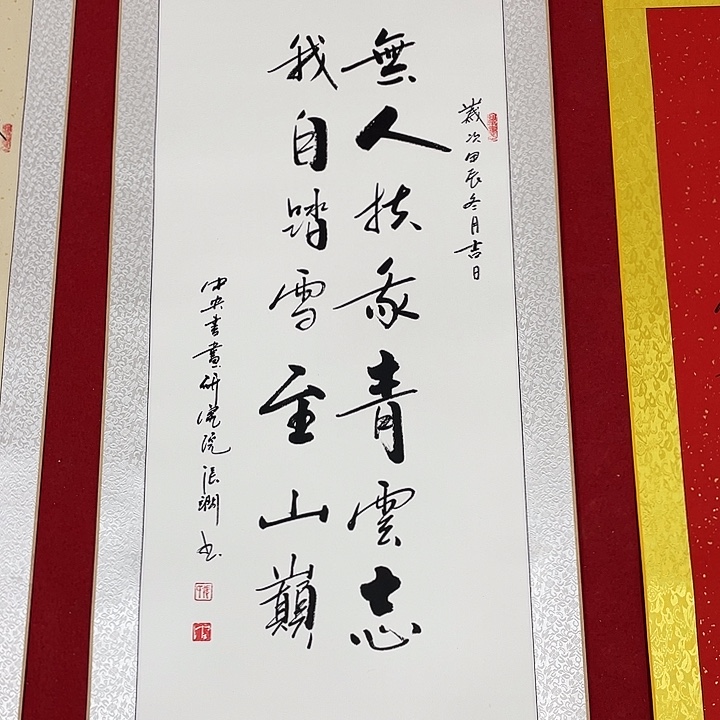 歲次甲辰冬月吉日
無人扶我青雲志
我自踏雪至山巔
中央書畫研究院張潮书